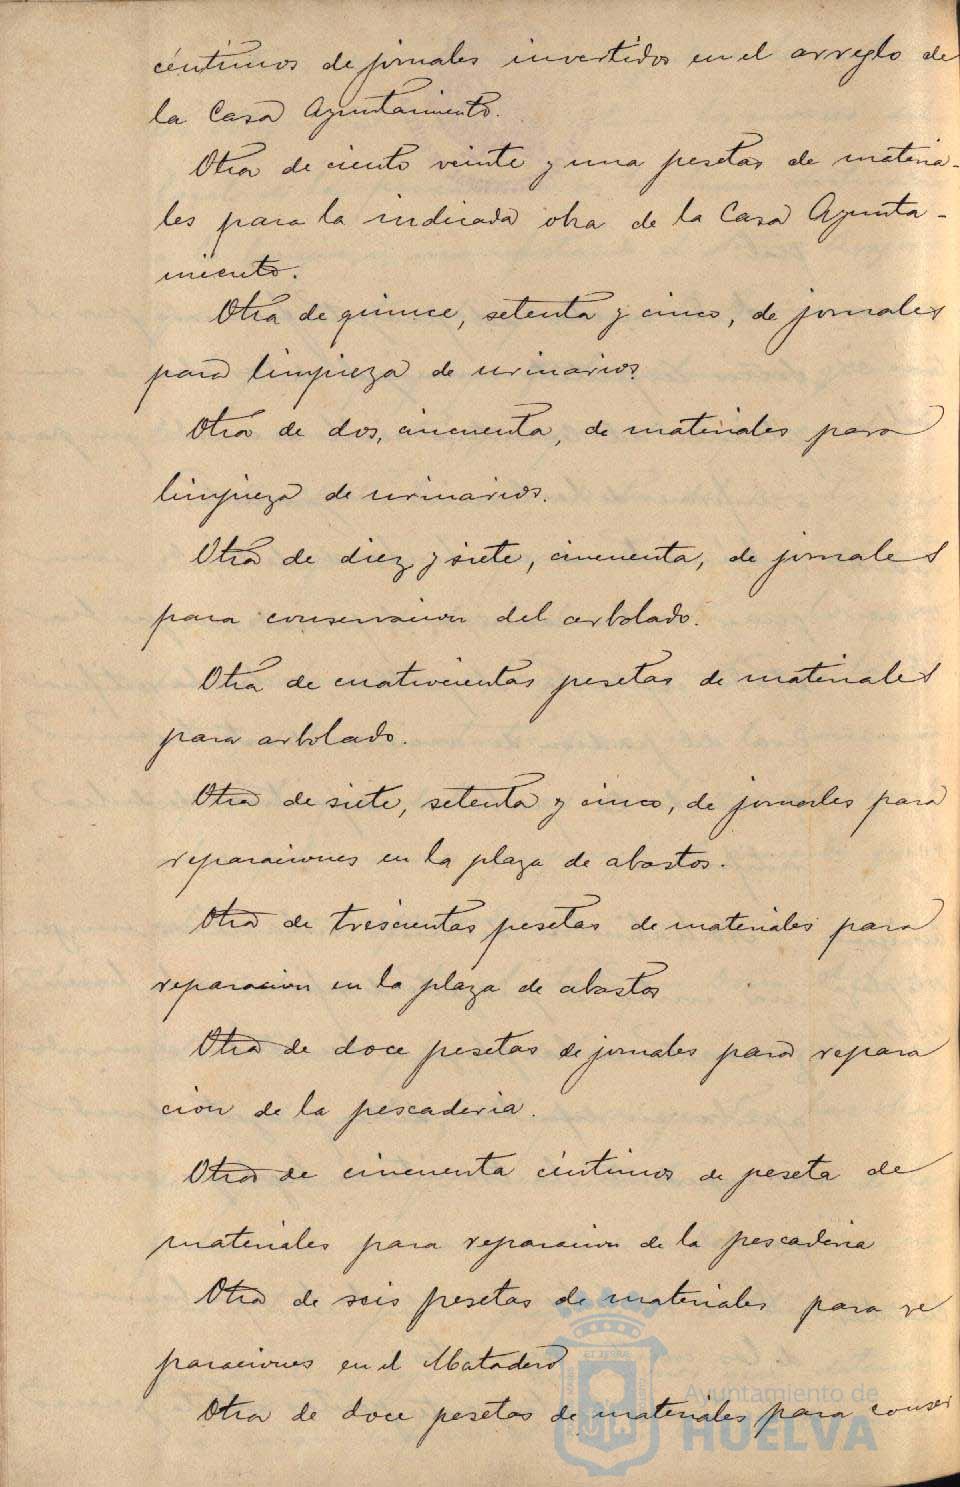 céntimos de jornales invertidos en el arreglo de
la Casa Ayuntamiento.
Otra de ciento veinte y una pesetas de materia-
les para la indicada obra de la Casa Ayunta-
miento.
Otra de quince, setenta y cinco, de jornales
para limpieza de urinarios.
Otra de dos, cincuenta, de materiales para
limpieza de urinarios.
Otra de diez y siete, cincuenta, de jornales
para conservacion del arbolado.
Otra de cuatrocientas pesetas de materiales
para arbolado.
Otra de siete, setenta y cinco, de jornales para
reparaciones en la plaza de abastos.
Otra de trescientas pesetas de materiales para
reparacion en la plaza de abastos
Otra de doce pesetas de jornales para repara
cion de la pescaderia.
Otra de cincuenta céntimos de peseta de
materiales para reparacion de la pescaderia
Otra de seis pesetas de materiales para re
paraciones en el Matadero
Otra de doce pesetas de materiales para conser
Ayuntamiento de
HUELVA